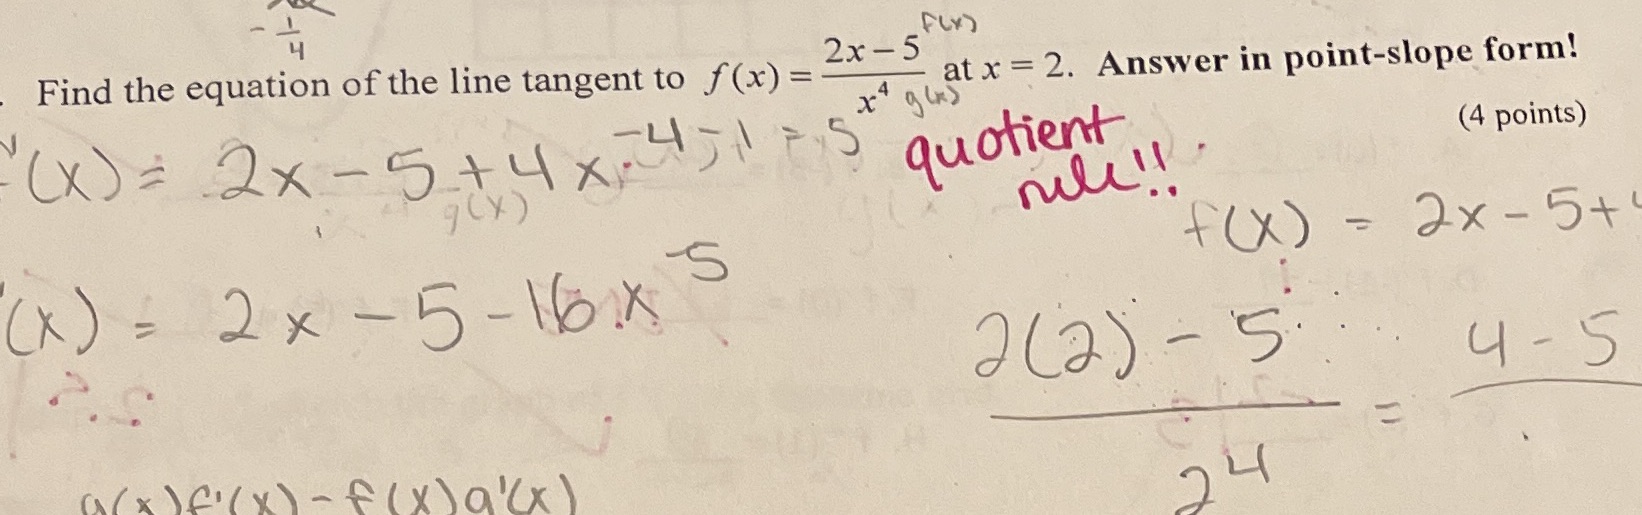 - 1/4
F(x)
. Find the equation of the line tangent to f(x) = (2x – 5)/x⁴ at x = 2. Answer in point-slope form!
g(x)
(4 points)
'(x) = 2x - 5 + 4x
quotient
rule!!
g(x)
f(x) = 2x - 5 +
'(x) = 2x - 5 - 16x⁻⁵
(2(2) - 5)/2⁴ = 4 - 5
g(x)f'(x) - f(x)g'(x)